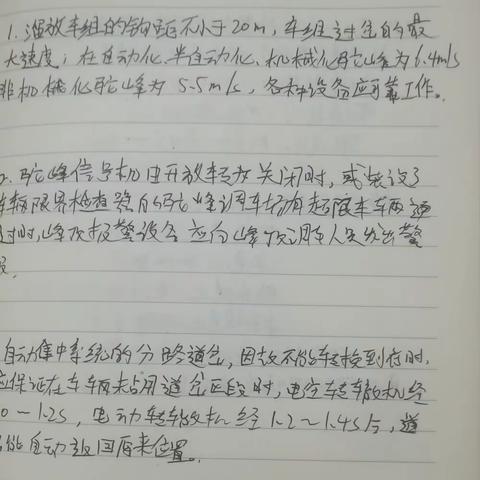 1.溜放车组的钩距不小于20m,车组过岔的最
大速度;在自动化、半自动化、机械化驼峰为6.4m/s
非机械化驼峰为5.5m/s,各种设备应可靠工作。
2.驼峰信号机由开放转为关闭时,或装设了
车辆限界检查器的驼峰调车场有超限车车辆通
过时,峰顶报警设备应向峰顶调车人员发出警
报。
自动集中系统的分路道岔,因故不能转换到位时,
应保证在车辆未占用道岔区段时,电空转辙机经
0~1.2S,电动转辙机经1.2~1.4S后,道
岔能自动返回原来位置。